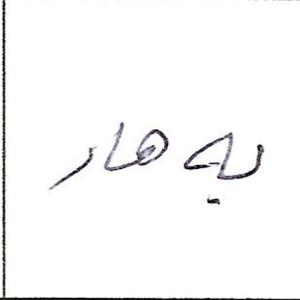 بەهار